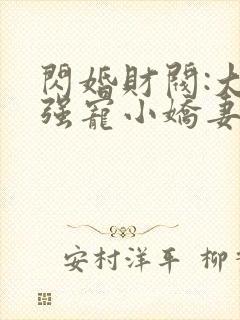 閃婚財閥:大
强寵小嬌妻
安村洋平 柳